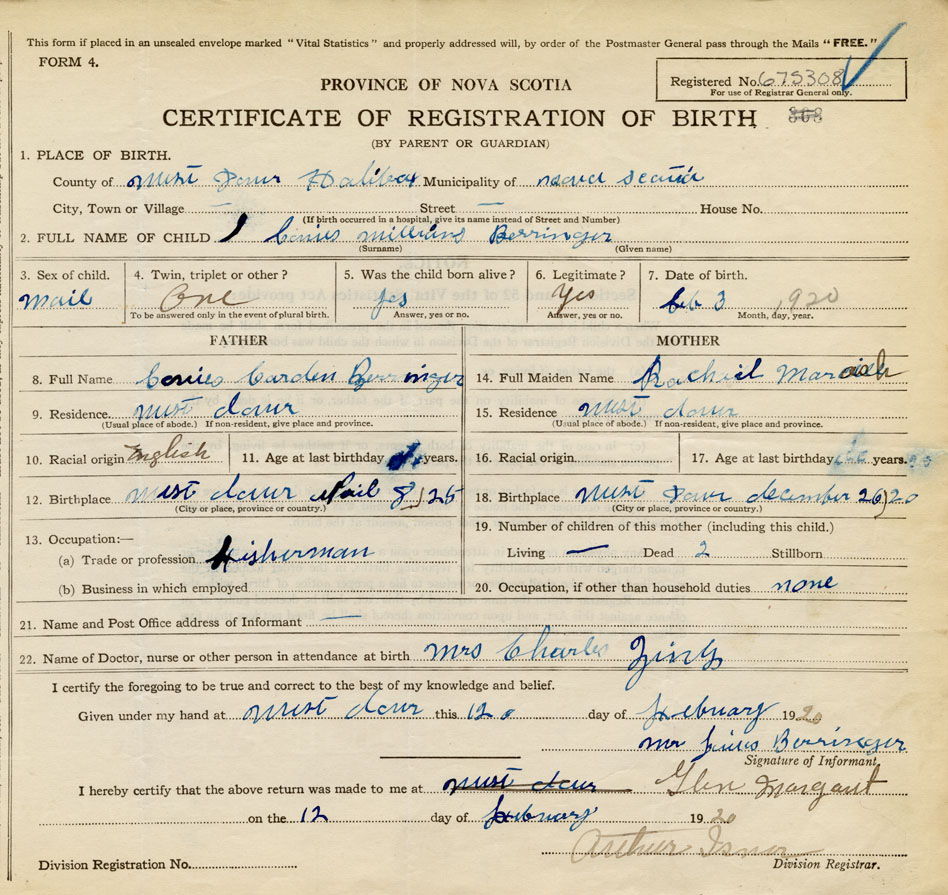 This form if placed in an unsealed envelope marked "Vital Statistics" and properly addressed will, by order of the Postmaster General pass through the Mails "FREE."
FORM 4.
PROVINCE OF NOVA SCOTIA
Registered No. 675308
For use of Registrar General only.
CERTIFICATE OF REGISTRATION OF BIRTH
(BY PARENT OR GUARDIAN)
1. PLACE OF BIRTH.
County of Halifax Municipality of nova scotia
City, Town or Village — Street — House No.
(If birth occurred in a hospital, give its name instead of Street and Number)
2. FULL NAME OF CHILD Berringer
(Surname) (Given name)
3. Sex of child. 4. Twin, triplet or other? 5. Was the child born alive? 6. Legitimate? 7. Date of birth.
mail One yes yes 3 1920
To be answered only in the event of plural birth. Answer, yes or no. Answer, yes or no. Month, day, year.
FATHER MOTHER
8. Full Name Berringer 14. Full Maiden Name Racheil
9. Residence. 15. Residence
(Usual place of abode.) If non-resident, give place and province. (Usual place of abode.) If non-resident, give place and province.
10. Racial origin English 11. Age at last birthday years. 16. Racial origin 17. Age at last birthday years.
12. Birthplace 8, 25 18. Birthplace december 26, 20
(City or place, province or country.) (City or place, province or country.)
13. Occupation:— 19. Number of children of this mother (including this child.)
(a) Trade or profession Fisherman Living — Dead 2 Stillborn
(b) Business in which employed 20. Occupation, if other than household duties none
21. Name and Post Office address of Informant —
22. Name of Doctor, nurse or other person in attendance at birth mrs Charles Zink
I certify the foregoing to be true and correct to the best of my knowledge and belief.
Given under my hand at this 12 day of February 1920
mr Berringer
Signature of Informant.
I hereby certify that the above return was made to me at Glen Margaret
on the 12 day of February 1920
Arthur
Division Registration No. Division Registrar.